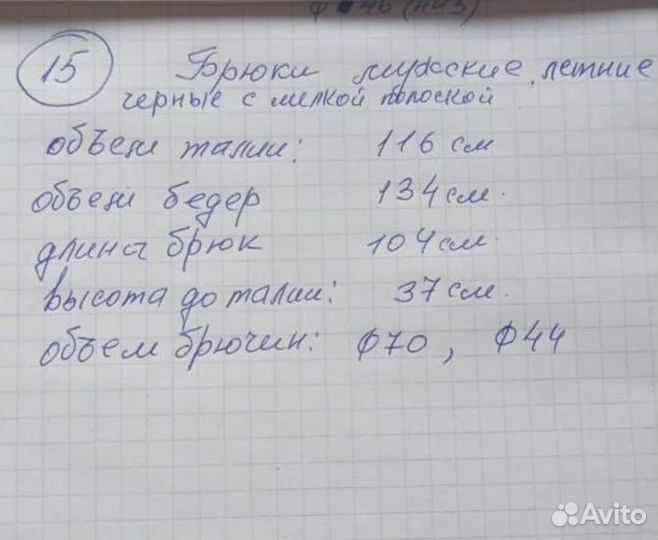 ф 46 (низ)
15 Брюки мужские, летние
черные с мелкой полоской
объем талии: 116 см
объем бедер 134 см.
длина брюк 104 см.
высота до талии: 37 см.
объем брючин: ф70, ф44
Avito